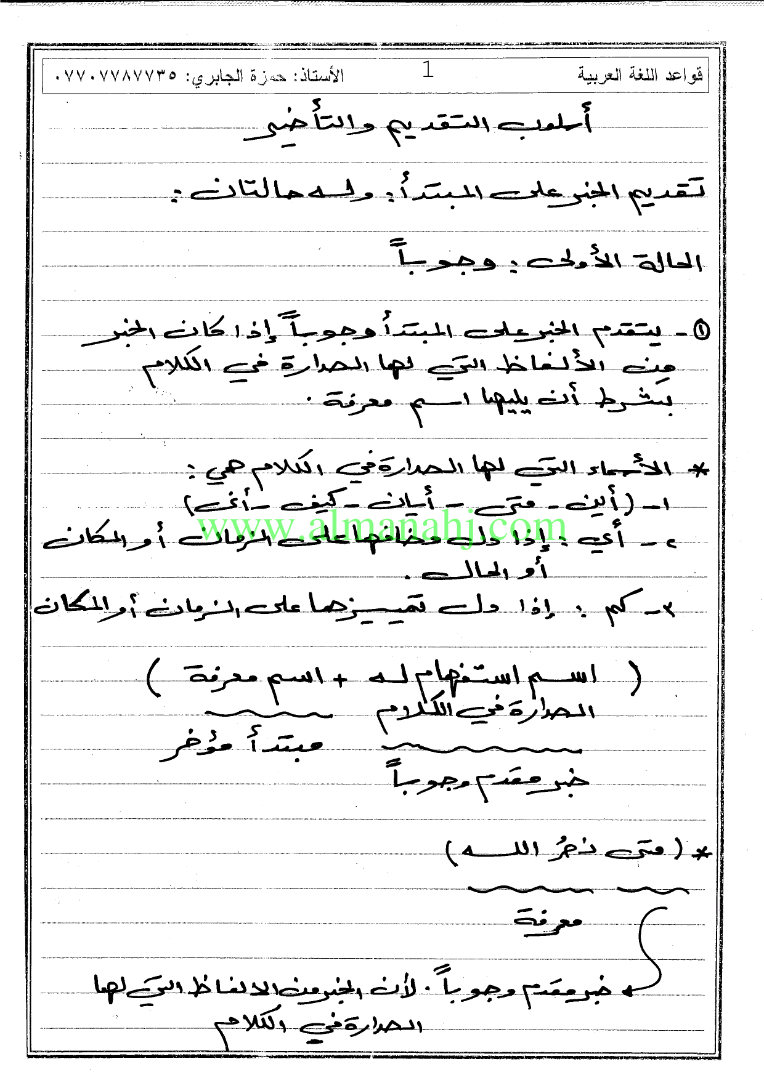 قواعد اللغة العربية 1 الأستاذ: حمزة الجابري: ٠٧٧٠٧٧٨٧٧٣٥
أسلوب التقديم والتأخير
تقديم الخبر على المبتدأ: وله حالتان:
الحالة الأولى: وجوباً
١- يتقدم الخبر على المبتدأ وجوباً إذا كان الخبر
من الألفاظ التي لها الصدارة في الكلام
بشرط أن يليها اسم معرفة.
* الأسماء التي لها الصدارة في الكلام هي:
١- (أين - متى - أيان - كيف - أنى)
www.almanahj.com
٢- أي: إذا دل مضافها على الزمان أو المكان
أو الحال.
٣- كم: إذا دل تمييزها على الزمان أو المكان
( اسم استفهام له + اسم معرفة )
الصدارة في الكلام
مبتدأ مؤخر
خبر مقدم وجوباً
* (متى نصرُ الله)
معرفة
خبر مقدم وجوباً. لأن الخبر من الالفاظ التي لها
الصدارة في الكلام